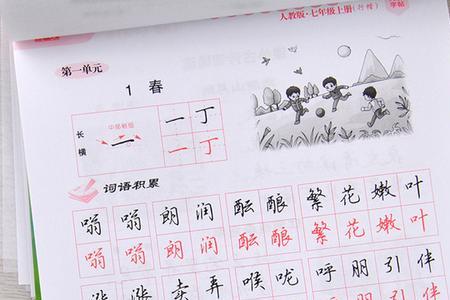 人教版·七年级上册(行楷)
字帖
第一单元
1 春
长横
中部稍细
一
一丁
一丁
词语积累
嗡嗡 朗润 酝酿 繁花嫩叶
嗡嗡 朗润 酝酿 繁花嫩叶
涨涨 卖弄 喉咙 呼朋引伴